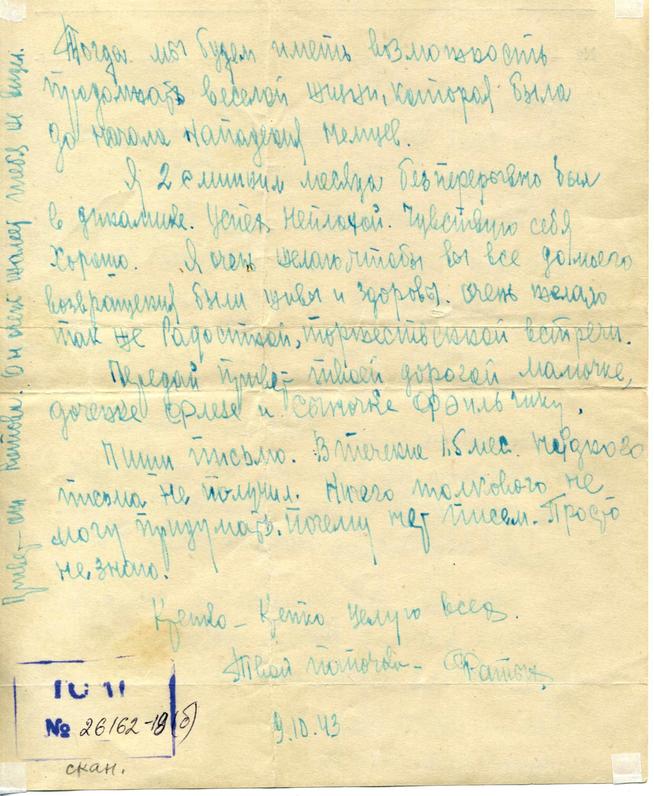 Тогда мы будем иметь возможность
продолжать веселой жизни, которая была
до начала нападения немцев.
Я 2 с лишним месяца безперерывно был
в динамике. Успех неплохой. Чувствую себя
хорошо. Я очень желаю чтобы вы все до моего
возвращения были живы и здоровы. Очень желаю
так же радостной, торжественной встречи.
Передай привет твоей дорогой мамочке,
доченьке и сыночке
Пиши письмо. В течение 1.5 мес. ни одного
письма не получил. Ничего толкового не
могу придумать. Почему нет писем. Просто
не знаю.
Крепко – Крепко целую всех.
Твой папочка –
9.10.43
Привет от Он очень тебя
№ 26162-19(б)
скан.